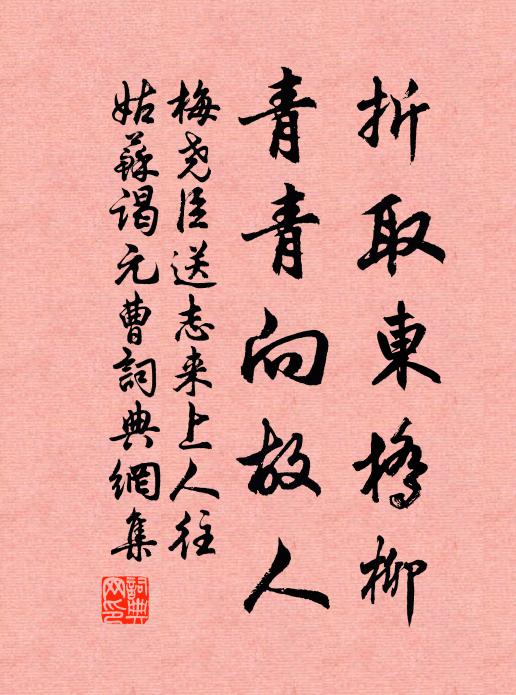 折取東橋柳
青青向故人
梅尧臣送志来上人往
姑蘇謁元曹詞典網集
詞典網印